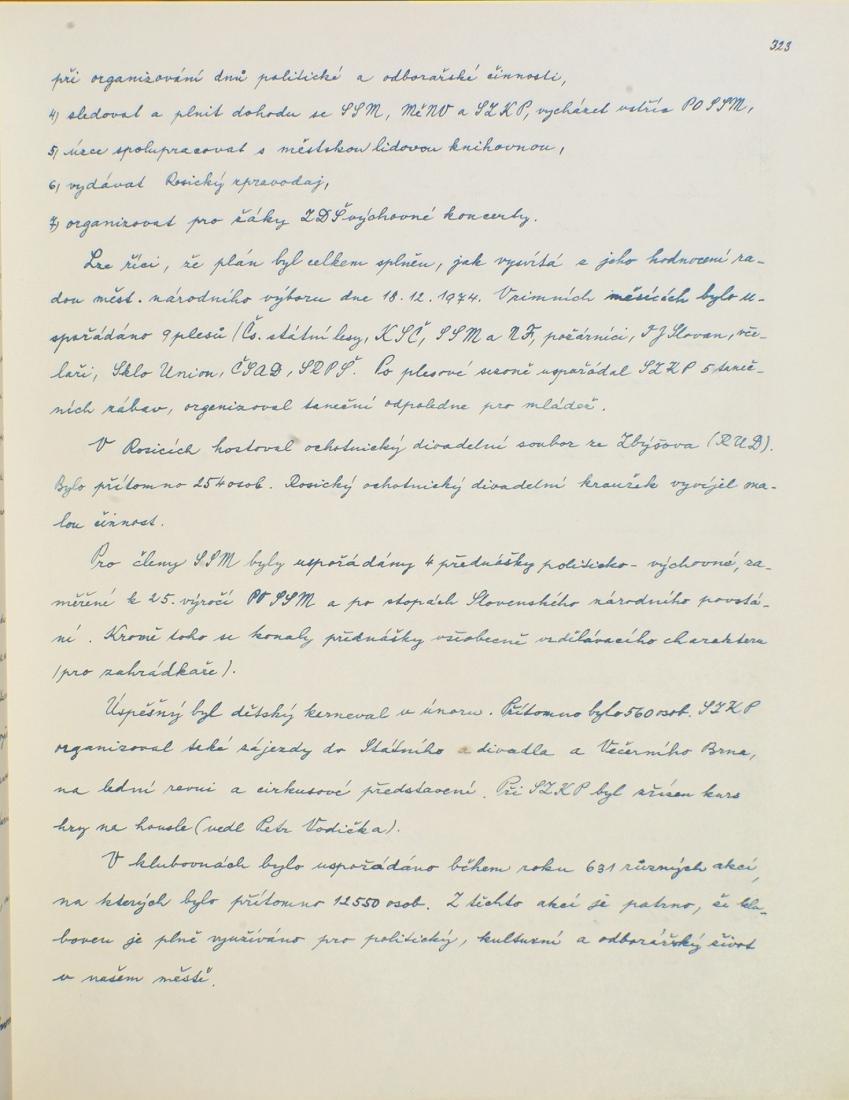 323
při organizování dnů politické a odborářské činnosti,
4) sledovat a plnit dohodu se SSM, MěNV a SZKP, vycházet vstříc PO SSM,
5) úzce spolupracovat s městskou lidovou knihovnou,
6) vydávat Rosický zpravodaj,
7) organizovat pro žáky ZDŠ výchovné koncerty.
Lze říci, že plán byl celkem splněn, jak vysvítá z jeho hodnocení ra-
dou měst. národního výboru dne 18.12.1974. V zimních měsících bylo u-
spořádáno 9 plesů (Čs. státní lesy, KSČ, SSM a NF, požárníci, TJ Slovan, vče-
laři, Sklo Union, ČSAD, SRPŠ. Po plesové sezoně uspořádal SZKP 5 taneč-
ních zábav, organizoval taneční odpoledne pro mládež.
V Rosicích hostoval ochotnický divadelní soubor ze Zbýšova (RUD).
Bylo přítomno 254 osob. Rosický ochotnický divadelní kroužek vyvíjel ma-
lou činnost.
Pro členy SSM byly uspořádány 4 přednášky politicko-výchovné, za-
měřené k 25. výročí PO SSM a po stopách Slovenského národního povstá-
ní. Kromě toho se konaly přednášky všeobecně vzdělávacího charakteru
(pro zahrádkáře).
Úspěšný byl dětský karneval v únoru. Přítomno bylo 560 osob. SZKP
organizoval také zájezdy do Státního divadla a Večerního Brna,
na lední revui a cirkusové představení. Při SZKP byl zřízen kurs
hry na housle (vedl Petr Vodička).
V klubovnách bylo uspořádáno během roku 631 různých akcí,
na kterých bylo přítomno 12550 osob. Z těchto akcí je patrno, že klu-
boven je plně využíváno pro politický, kulturní a odborářský život
v našem městě.